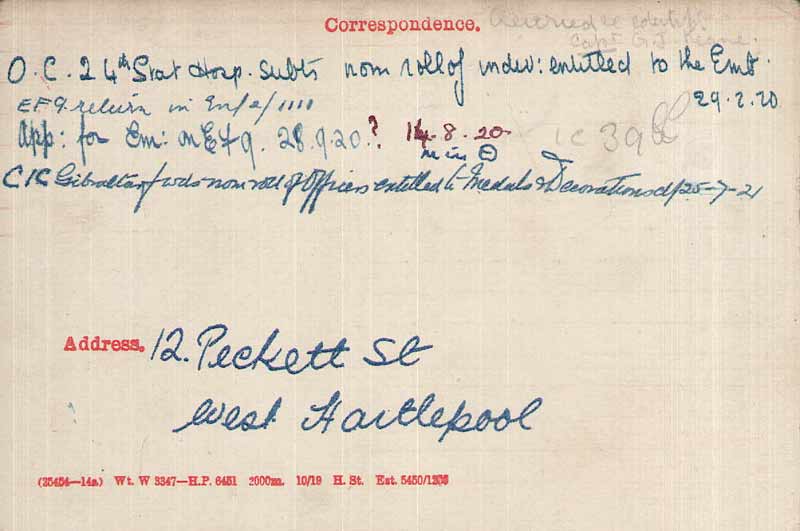 Correspondence.
Capt G. J.
O.C. 24th Stat Hosp. subts nom roll of indiv: entitled to the Emb.
29.2.20
EF9. return in
App: for Em: on EF9. 28.9.20.? 14.8.20
IC 39
C I C Gibraltar fwds nom roll of Officers entitled to Medals & Decorations d/25-7-21
Address. 12. Peckett St
West Hartlepool
(35454—14a) Wt. W 3347—H.P. 6451 2000m. 10/19 H. St. Est. 5450/